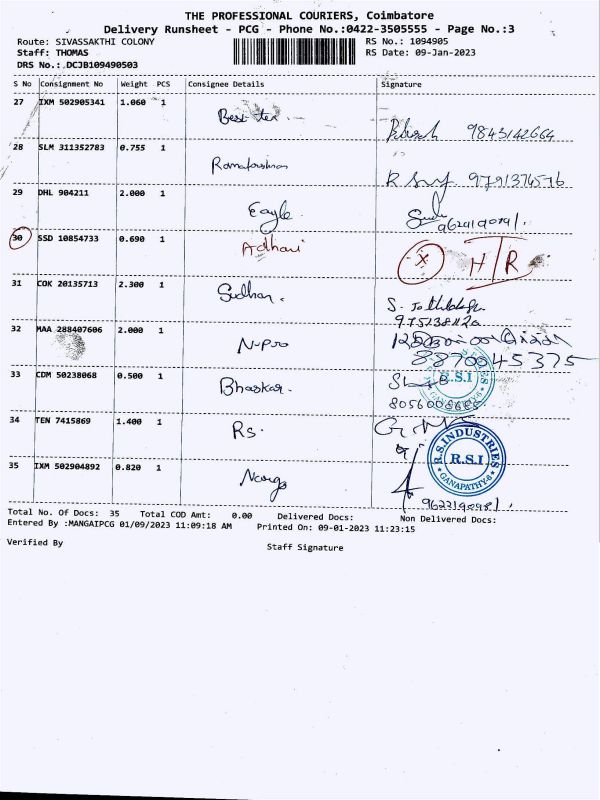 THE PROFESSIONAL COURIERS, Coimbatore
Delivery Runsheet - PCG - Phone No.:0422-3505555 - Page No.:3
Route: SIVASSAKTHI COLONY RS No.: 1094905
Staff: THOMAS RS Date: 09-Jan-2023
DRS No.: DCJB109490503
S No Consignment No Weight PCS Consignee Details Signature
27 IXM 502905341 1.060 1 Best tex
9843142664
28 SLM 311352783 0.755 1 Ramakrishnan
9791374576
29 DHL 904211 2.000 1 Eagle
30 SSD 10854733 0.690 1 Adhavi X H/R
31 COK 20135713 2.300 1 Sudhan.
32 MAA 288407606 2.000 1 N-pro
8870045375
33 CDM 50238068 0.500 1 Bhaskar.
R.S.I
GANAPATHY-6
34 TEN 7415869 1.400 1 RS.
R.S.INDUSTRIES
R.S.I.
GANAPATHY-6
35 IXM 502904892 0.820 1
Total No. Of Docs: 35 Total COD Amt: 0.00 Delivered Docs: Non Delivered Docs:
Entered By :MANGAIPCG 01/09/2023 11:09:18 AM Printed On: 09-01-2023 11:23:15
Verified By Staff Signature